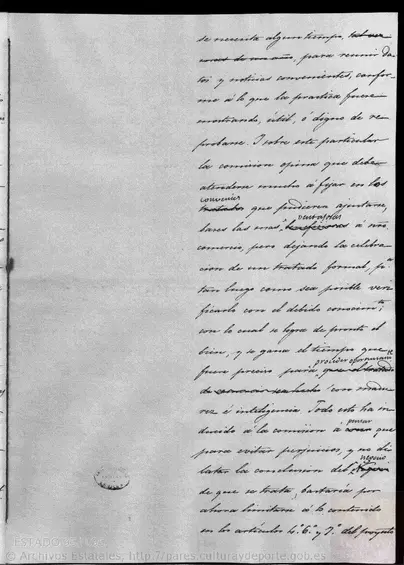 se necesita algun tiempo, tal vez
mas de un año, para reunir da-
tos y noticias convenientes, confor-
me á lo que la practica fuere
mostrando, útil, ó digno de re-
probarse. I sobre este particular
la comision opina que debe
atenderse mucho á fijar en los
convenios
tratados que pudieran ajustarse,
bases las mas beneficiosas á nro.
ventajosas
comercio, pero dejando la celebra-
cion de un tratado formal, pa
tan luego como sea posible veri-
ficarlo con el debido conocimto.
con lo cual se logra de pronto el
bien, y se gana el tiempo que
fuere preciso para
proceder
con madu-
rez é inteligencia. Todo esto ha in-
ducido á la comision á
pensar
que
para evitar perjuicios, y no di-
latar la conclusion del
negocio
de que se trata, bastaria por
ahora limitarse á lo contenido
en los articulos 4.º 6.º y 7.º del proyecto
ESTADO
© Archivos Estatales, http://pares.culturaydeporte.gob.es